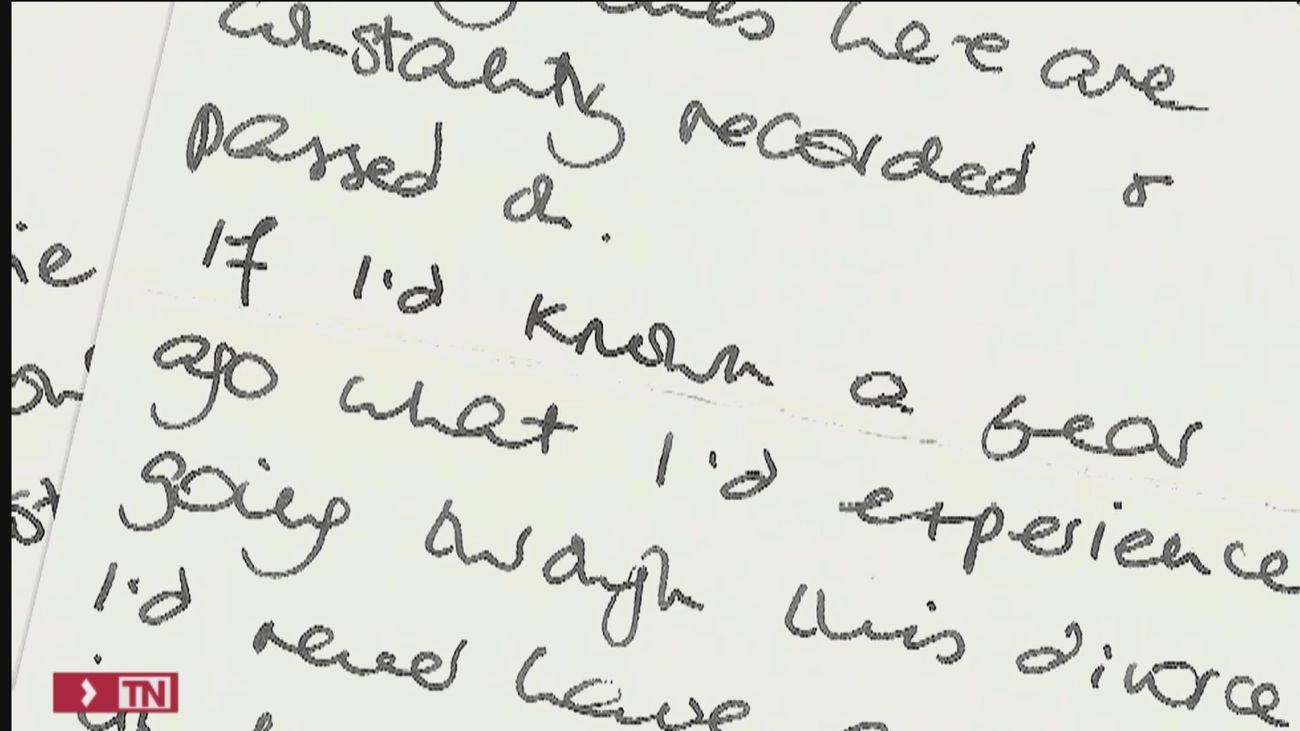 here are
constantly recorded &
passed on.
If I'd known a year
ago what I'd experience
going through this divorce
I'd never have
ie
st
TN